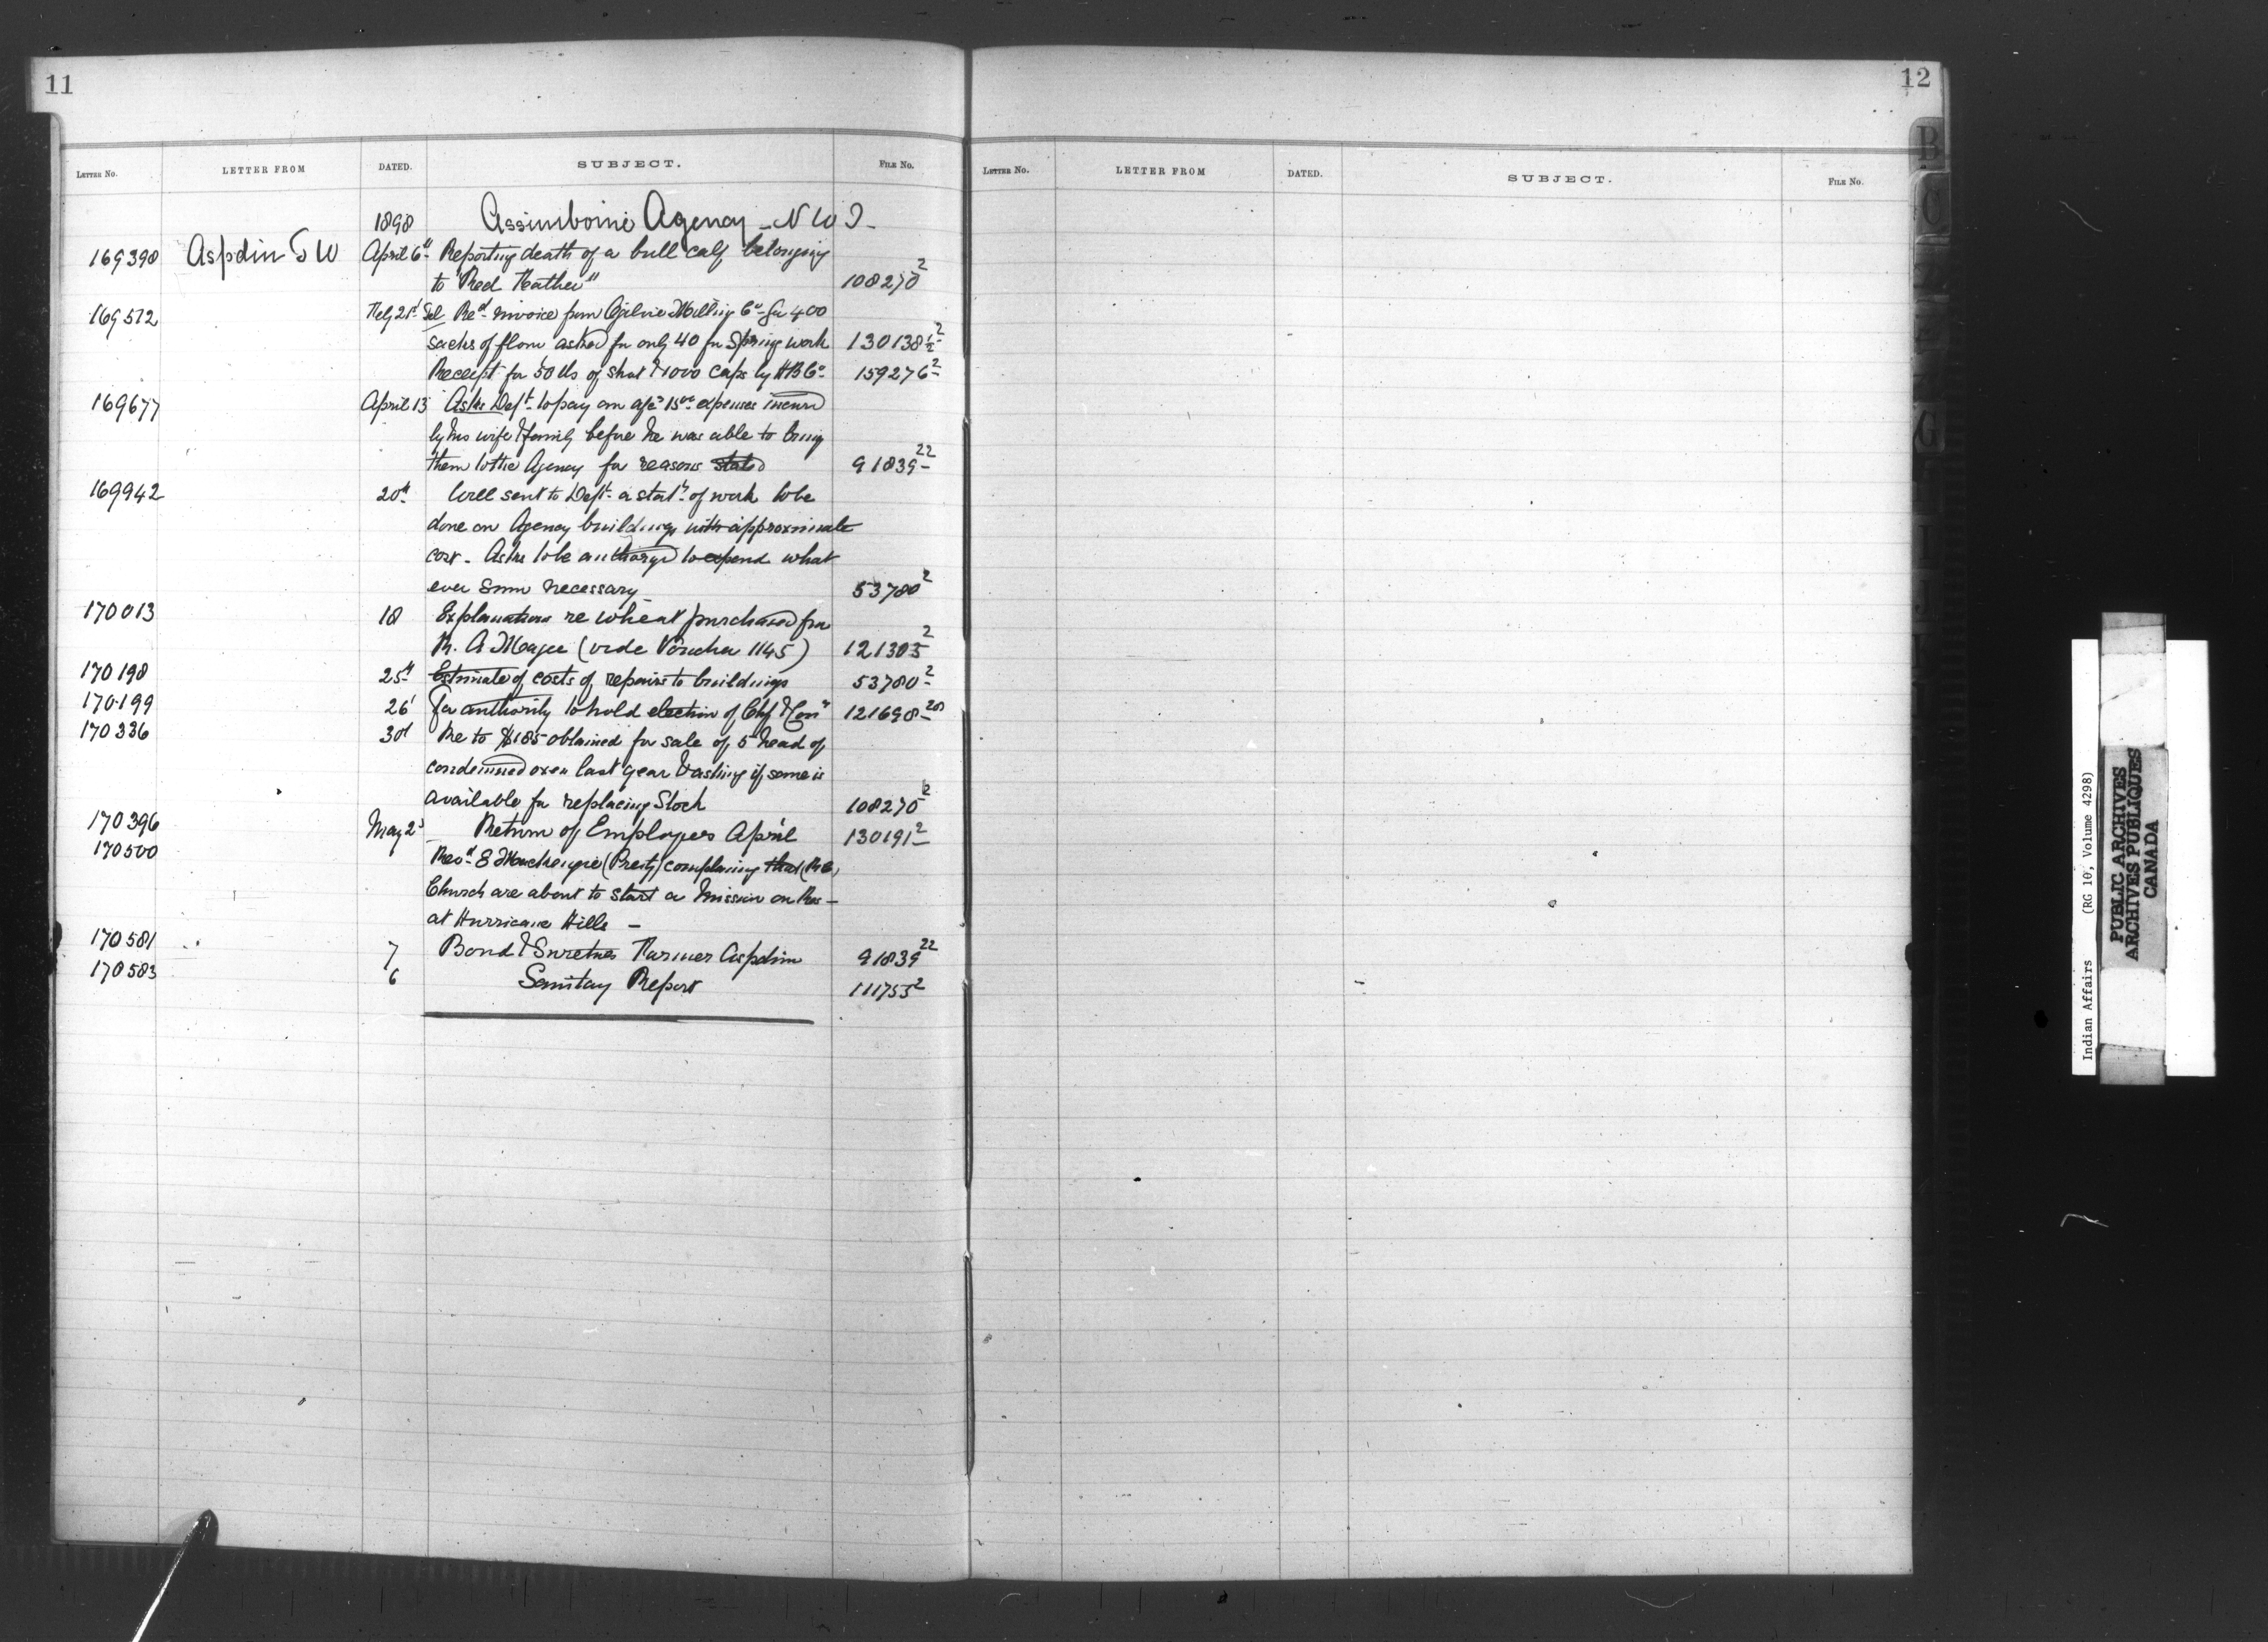 11
12
Letter No. LETTER FROM DATED. SUBJECT. File No.
Letter No. LETTER FROM DATED. SUBJECT. File No.
1898 Assiniboine Agency - N W T -
169398 Aspdin T W April 6th Reporting death of a bull calf belonging
to "Red Feather" 108270 2
169512 21st Tel Re invoice from Ogilvie Milling Co for 400
sacks of flour asked for only 40 for Spring work 130138 1/2 2
Receipt for 50 lbs of shot & 1000 caps by H B Co 159276 2
169677 April 13 Asks Dept to pay on expenses incurred
by his wife & family before he was able to bring
them to the Agency for reasons stated 91839 22
169942 20th Will sent to Dept a statt of work to be
done on Agency buildings with approximate
cost - Asks to be authorized to expend what
ever sum necessary 53780 2
170013 18 Explanations re wheat purchased from
R. A Magee (vide Voucher 1145) 121303 2
170198 25th Estimate of costs of repairs to buildings 53780 2
170199 26 for authority to hold election of Chf & Coun 121698 20
170336 30 Re to $185 obtained for sale of 5 head of
condemned oxen last year & asking if same is
available for replacing Stock 108270 2
170396 May 2 Return of Employees April 130191 2
170500 Revd E Mackenzie (Presty) complaining that (R C)
Church are about to start a Mission on Res -
at Hurricane Hills -
170581 7 Bond & Sureties Farmer Aspdin 91839 22
170583 6 Sanitary Report 111755 2
B
C
G
Indian Affairs (RG 10, Volume 4298)
PUBLIC ARCHIVES
ARCHIVES PUBLIQUES
CANADA